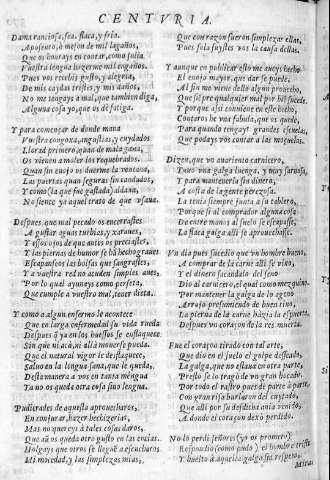 CENTVRIA.
Dama ranciosa, fea, flaca, y fria,
Aposento, ò meson de mil lagaños,
Que os loays en contar, como solia
Vuestra lengua hazer me mil engaños.
Pues vos recebis gusto, y alegria,
De mis caydas tristes, y mis daños,
No me tengays a mal, que tambien diga,
Alguna cosa yo, que os dè fatiga.
Y para començar de donde mana
Vuestra congoxa, angustias, y cuydados
Llorad primero, quan de mala gana,
Os vienen a moler los requebrados.
Quan sin enojo os duerme la ventana,
Las puertas quan seguras sin candados,
Y como (la que fue gastada) aldana,
No siente ya aquel trato de que vsaua.
Despues, que mal pecado os encerrastes
A gustar aguas turbias, y xaraues,
Y essos ojos de que antes os preciastes,
Y las piernas de humor se hã hecho graues
Escapastes las bolsas quan sangrastes,
Y a vuestra red no acuden simples aues,
Por lo qual ayunays como perfeta,
Que cumple a vuestro mal, tener dieta.
Y como a algun enfermo le acontece
Que en larga enfermedad su vida rueda
Despues q̃ ya en los huessos se enflaquece
Sin que ni acà, ni allà mouerse pueda.
Que el natural vigor le desfallece,
Saluo en la lengua sana, que le queda,
Desta manera a vos en tanta mengua
Ya no os queda otra cosa sino lengua.
Pudierades de aquesto aprouecharos,
En conjurar, hazer hechizerias,
Mas no quereys à tales cosas daros,
Que aũ os queda otro gusto en las encias.
Holgays que otros se lleguẽ a escucharos
Mi mocedad, y las simplezas mias,
Que con razon fueran simplezas ellas,
Pues sola fuystes vos la causa dellas.
Y aunque en publicar esto me aueys hecho
El enojo mayor, que dar se puede,
Al fin me viene desto algun prouecho,
Que siẽpre qualquier mal por biẽ sucede.
Y porque assi conuiene en este hecho,
Contaros he vna fabula, que os quede,
Para quando tengays grandes escuelas,
Que podays vos contar a las moçuelas.
Dizen, que vn auariento carnicero,
Tuuo vna galga luenga, y muy sarnosa,
Y para mantenerla sin dinero,
A costa de la gente perezosa.
La tenia siempre junto a su tablero,
Porque si al comprador alguna cosa
De entre manos al suelo se escapasse,
La flaca galga alli se aprouechasse.
Vn dia pues sucedio que vn hombre bueno,
A comprar de la carne alli se vino,
Y el dinero sacandolo del seno
Dio al carnicero, el qual como mezquino
Por mantener la galga de lo ageno
Arrojò presumiendo de buen tino,
La pierna de la carne hàzia la espuerta,
Despues vn coraçon de la res muerta.
Fue el coraçon tirado con tal arte,
Que dio en el suelo el golpe desseado,
La galga, que no estaua en otra parte,
Presto se lo tragò de vn gran bocado.
Por todo el rastro pues de parte a parte,
Con gran risa burlaron del cuytado,
Que alli por su desdicha auia venido,
A donde el coraçon dexò perdido.
No lo perdi señores (yo os prometo)
Respondio (como pudo) el hombre triste
Y buelto à aquella galga sin respeto,
Miras